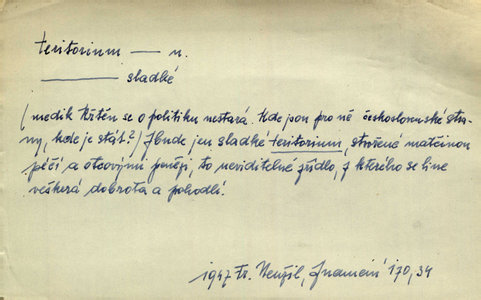 teritorium — n.
——— sladké
(medik Krtěn se o politiku nestará. Kde jsou pro ně československé stra-
ny, kde je stát?) Zbude jen sladké teritorium, střežené matčinou
péčí a otcovými penězi, to neviditelné zřídlo, z kterého se line
veškerá dobrota a pohodlí.
1947 Fr. Neužil, Znamení 170, 34